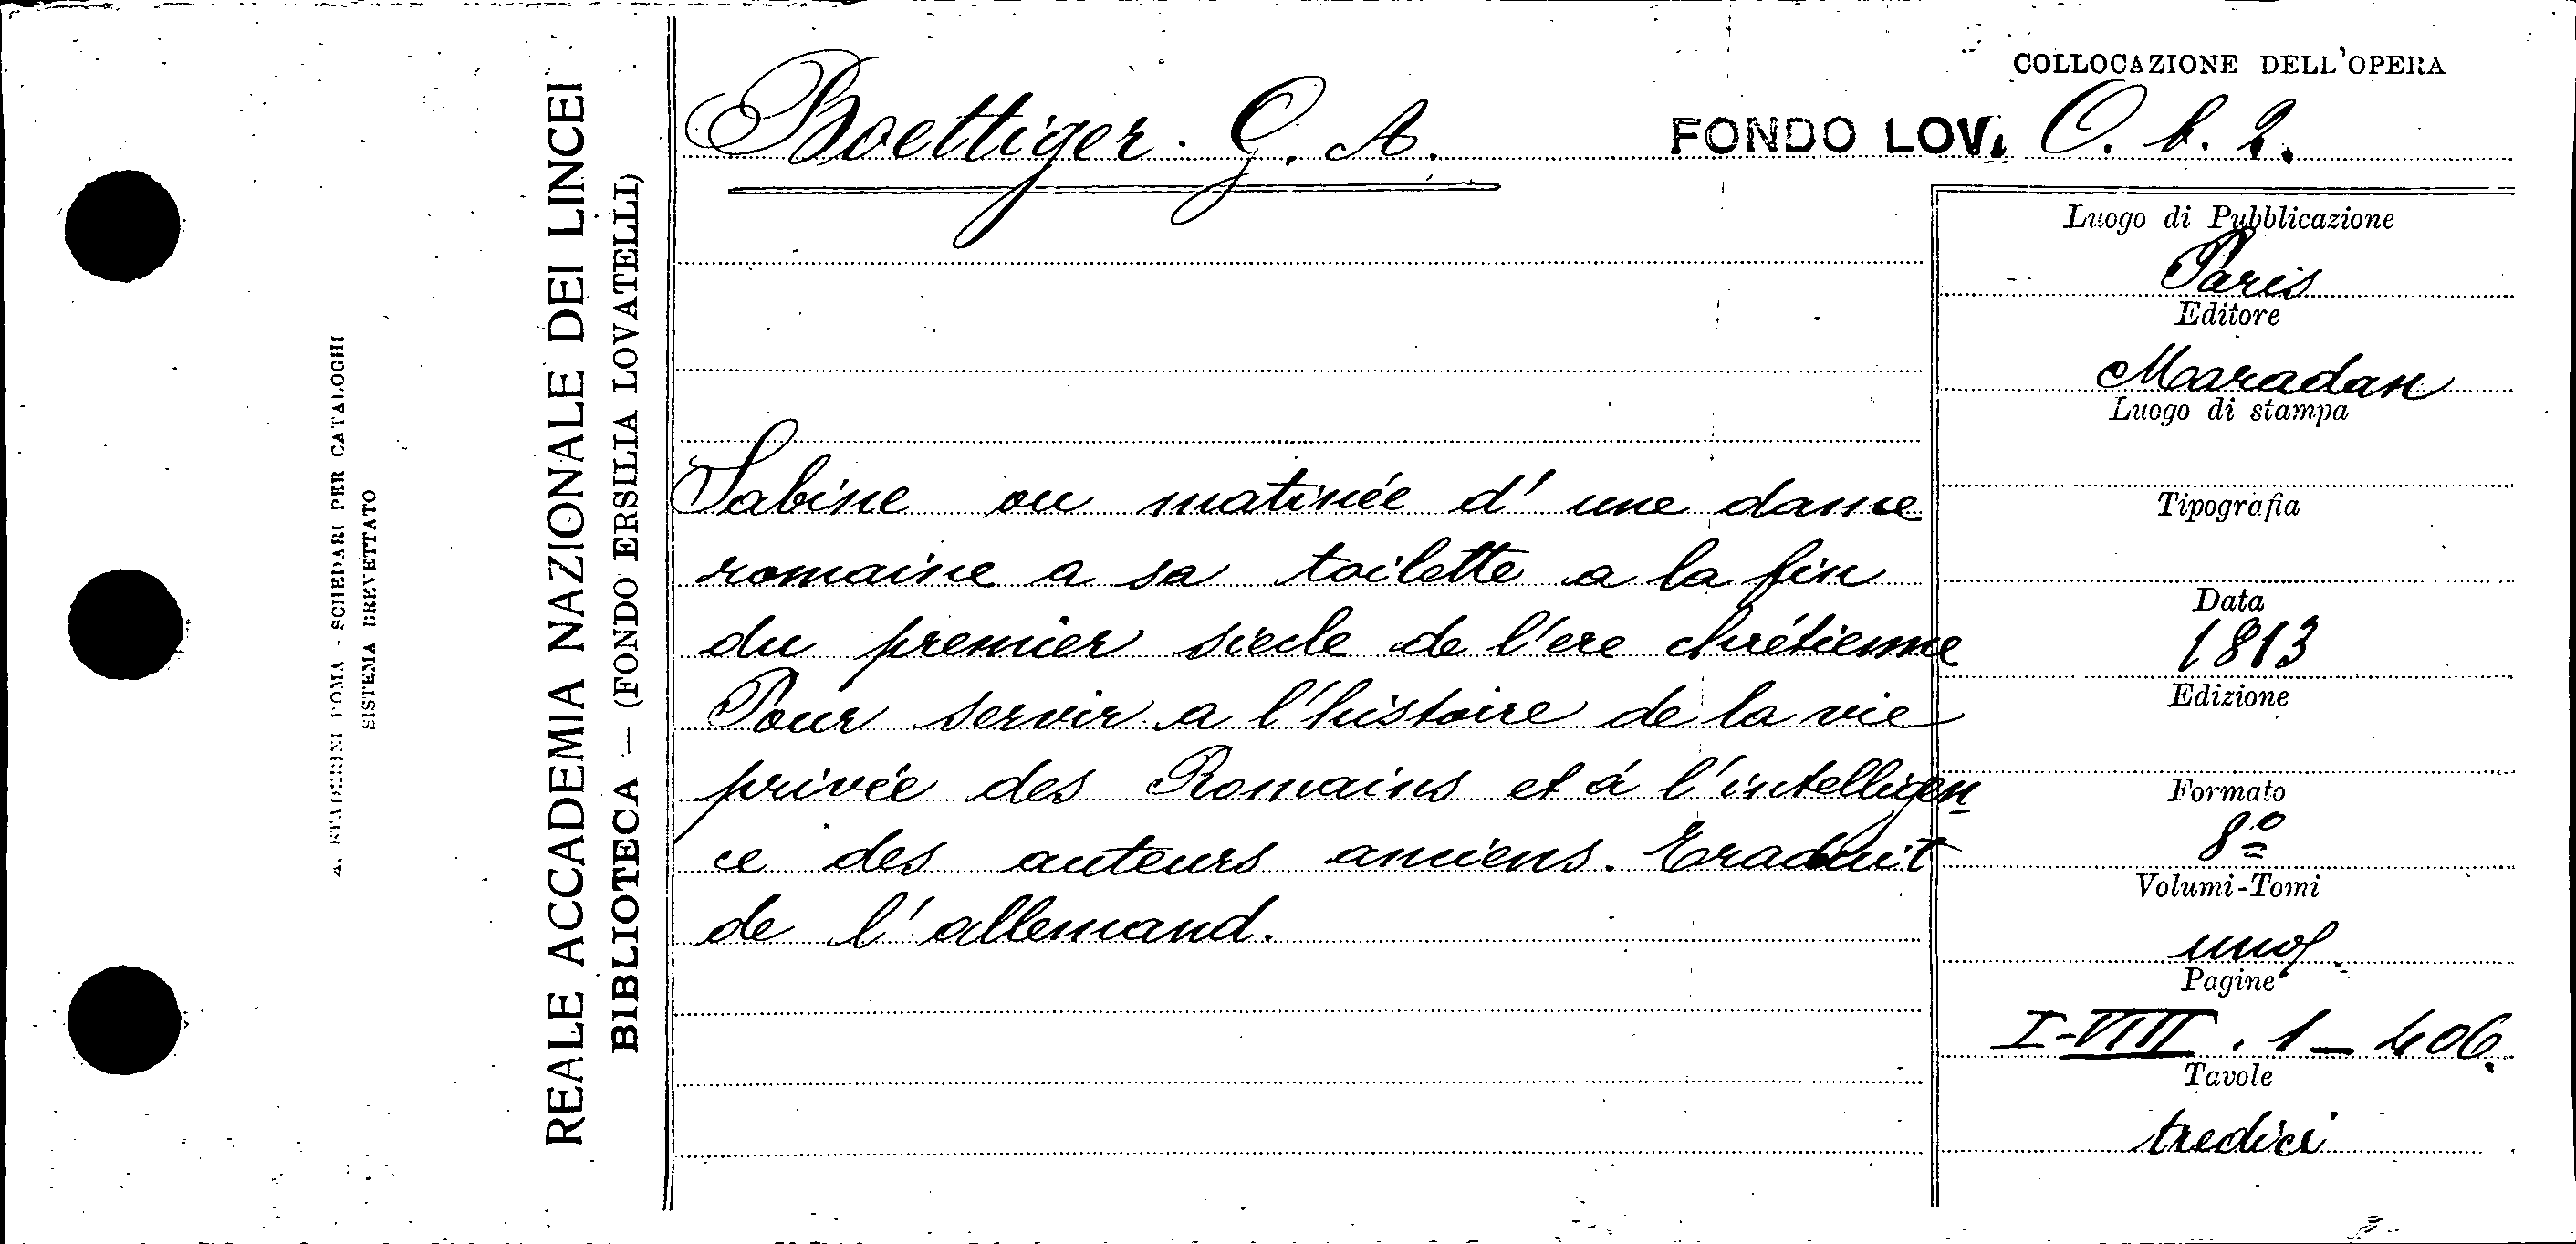 A. STADERINI ROMA - SCHEDARI PER CATALOGHI
SISTEMA BREVETTATO
REALE ACCADEMIA NAZIONALE DEI LINCEI
BIBLIOTECA — (FONDO ERSILIA LOVATELLI)
COLLOCAZIONE DELL'OPERA
Boettiger. G. A. FONDO LOV. O. b. 2.
Sabine ou matinée d' une dame
romaine a sa toilette a la fin
du premier siecle de l'ere chrétienne
Pour servir a l'histoire de la vie
privée des Romains et á l'intelligen
ce des auteurs anciens. Traduit
de l' allemand.
Luogo di Pubblicazione
Paris
Editore
Maradan
Luogo di stampa
Tipografia
Data
1813
Edizione
Formato
8º
Volumi-Tomi
uno
Pagine
I-VIII. 1 - 406.
Tavole
tredici